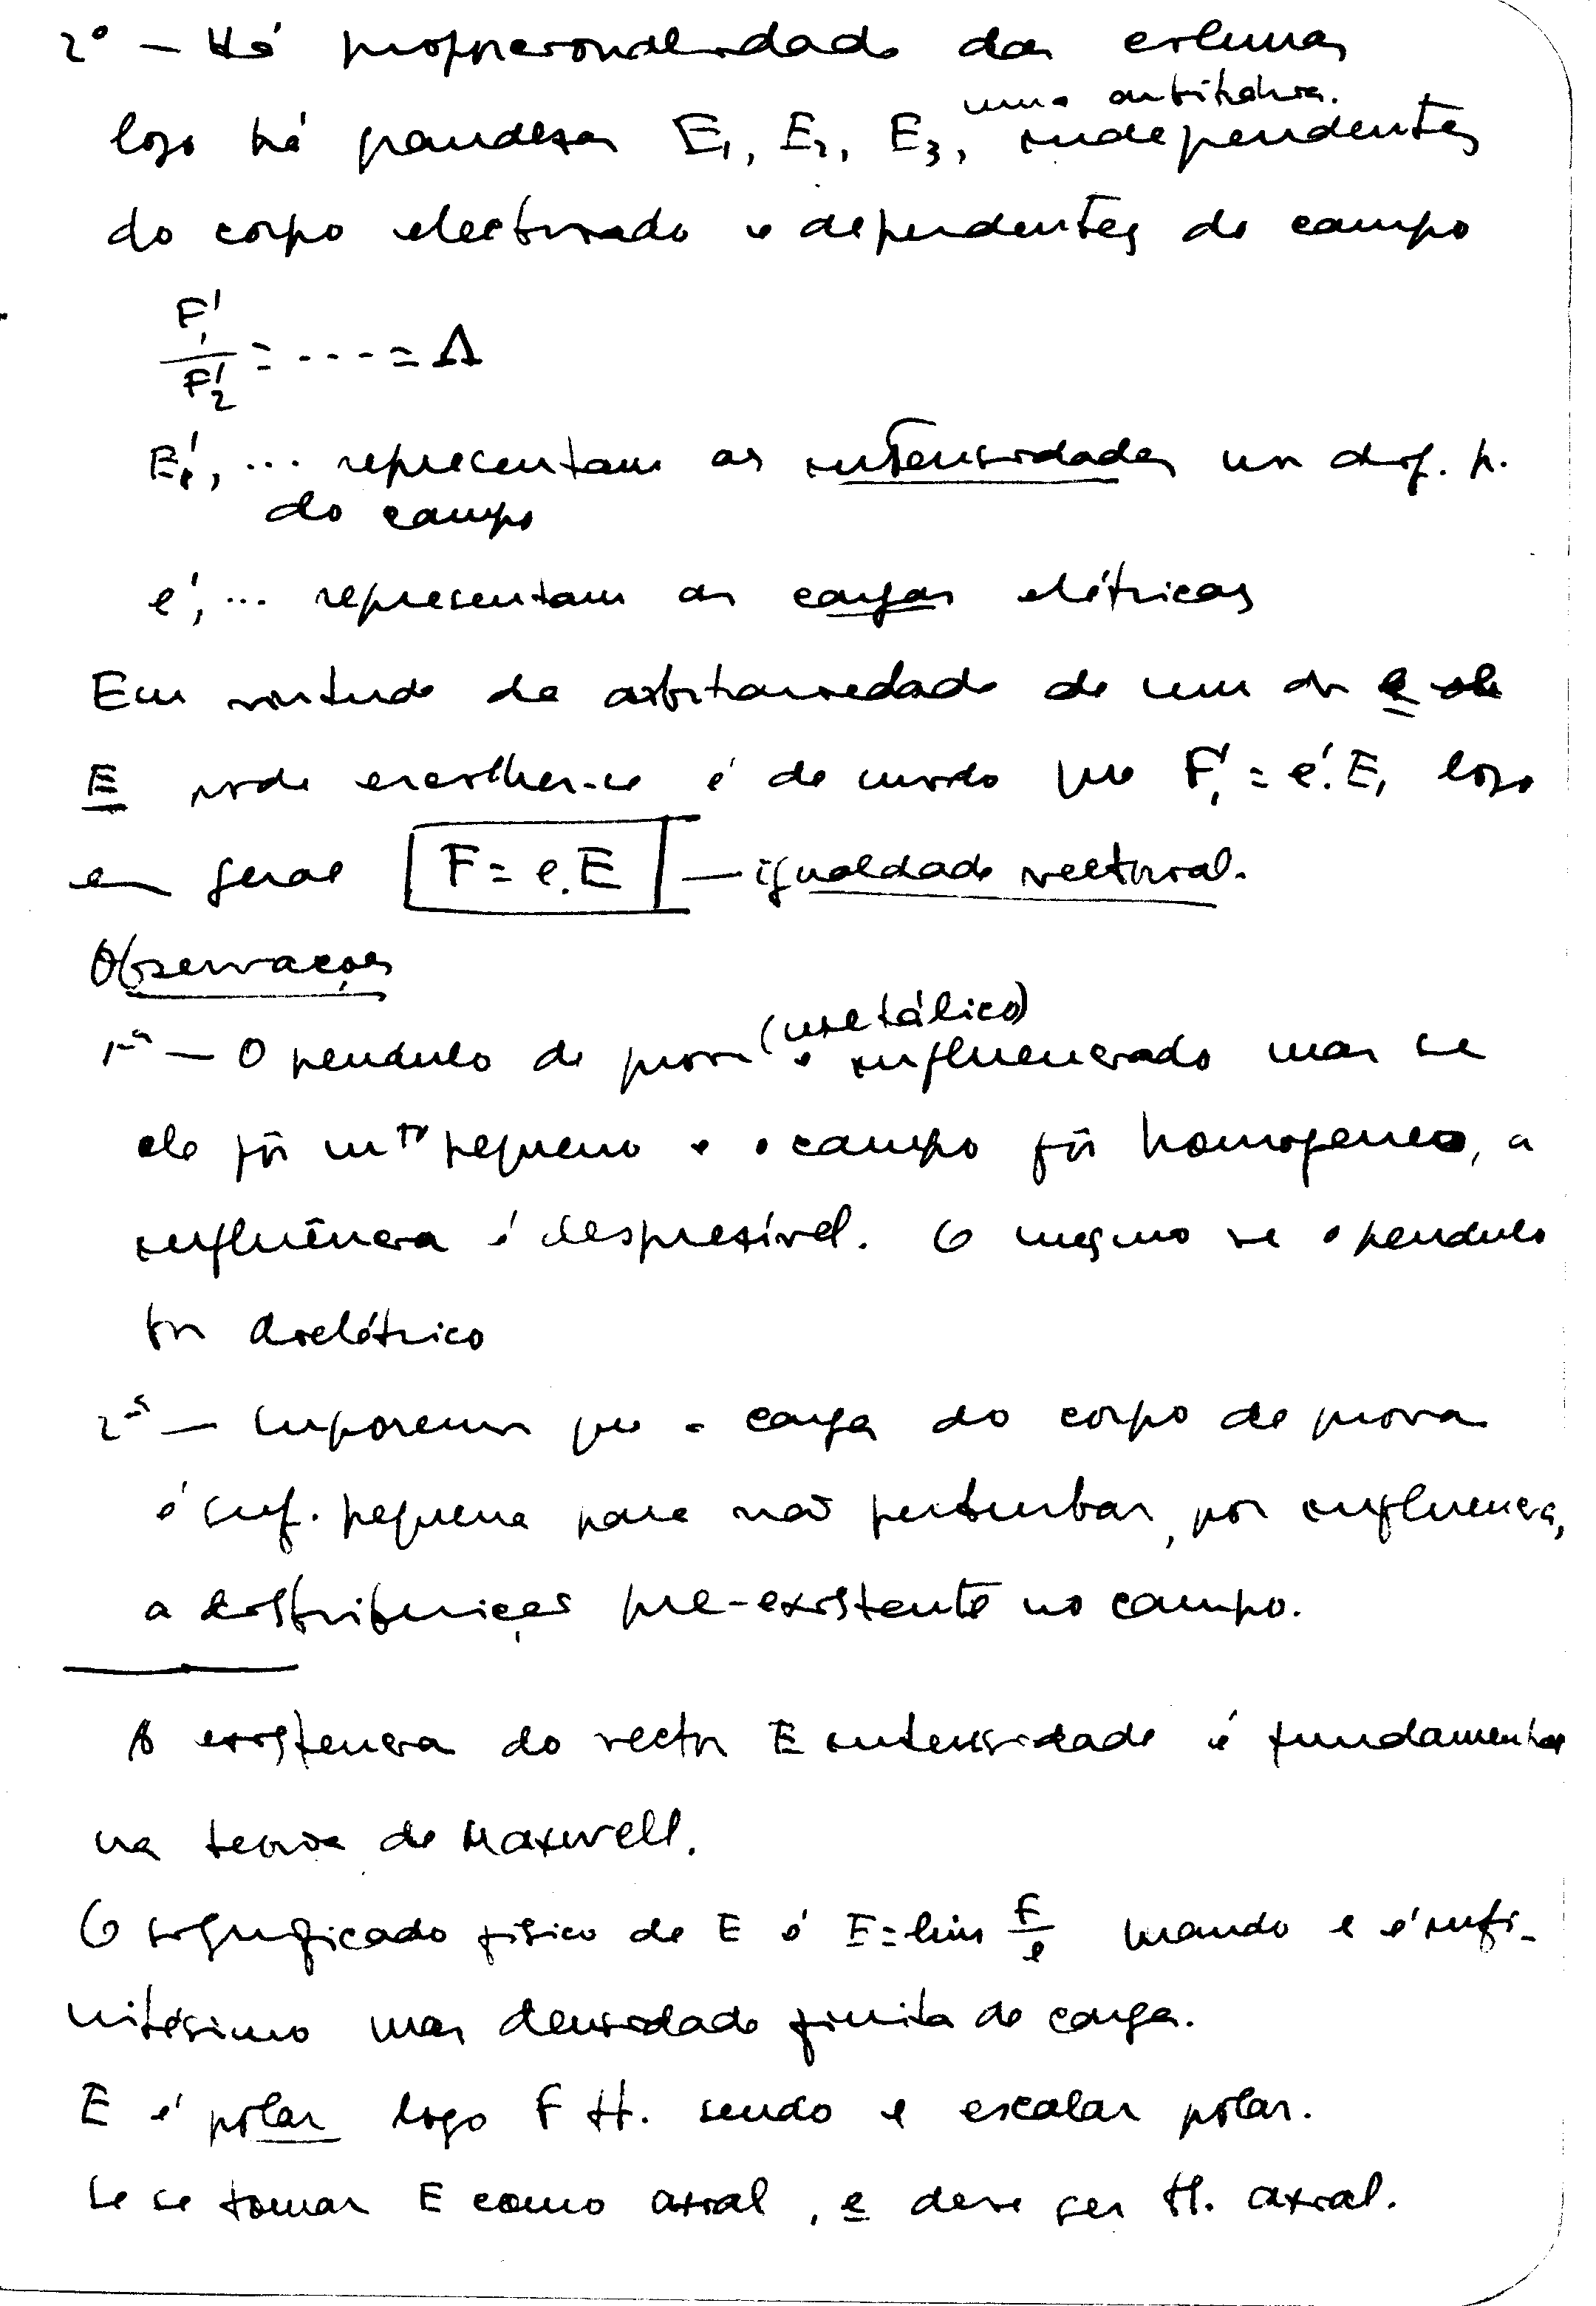 2º — Há proporcionalidade das colunas
uma arbitrária.
logo há grandezas E₁, E₂, E₃, independentes
do corpo electrizado e dependentes do campo
F'₁/F'₂ = ---- = Δ
E'₁, ... representam as intensidades nos dif. p.
do campo
e', ... representam as cargas elétricas
Em virtude da arbitrariedade de um dos e
E pode escolher-se é de modo que F'₁ = e'.E₁ logo
em geral F = e.E — igualdade vectorial.
Observações
1ª — O pendulo de prova (metálico) é influenciado mas se
ele fôr mto pequeno e o campo fôr homogeneo, a
influência é despresível. O mesmo se o pendulo
fôr dielétrico
2ª — Suporemos que a carga do corpo de prova
é suf. pequena para não perturbar, por influencia,
a distribuições pre-existente no campo.
A existencia do vector E intensidade é fundamental
na teoria de Maxwell.
O significado fisico de E é E = lim F/e quando e é infi-
nitésimo mas densidade finita de carga.
E é polar logo F tt. sendo e escalar polar.
Se se tomar E como axial, e deve ser tt. axial.